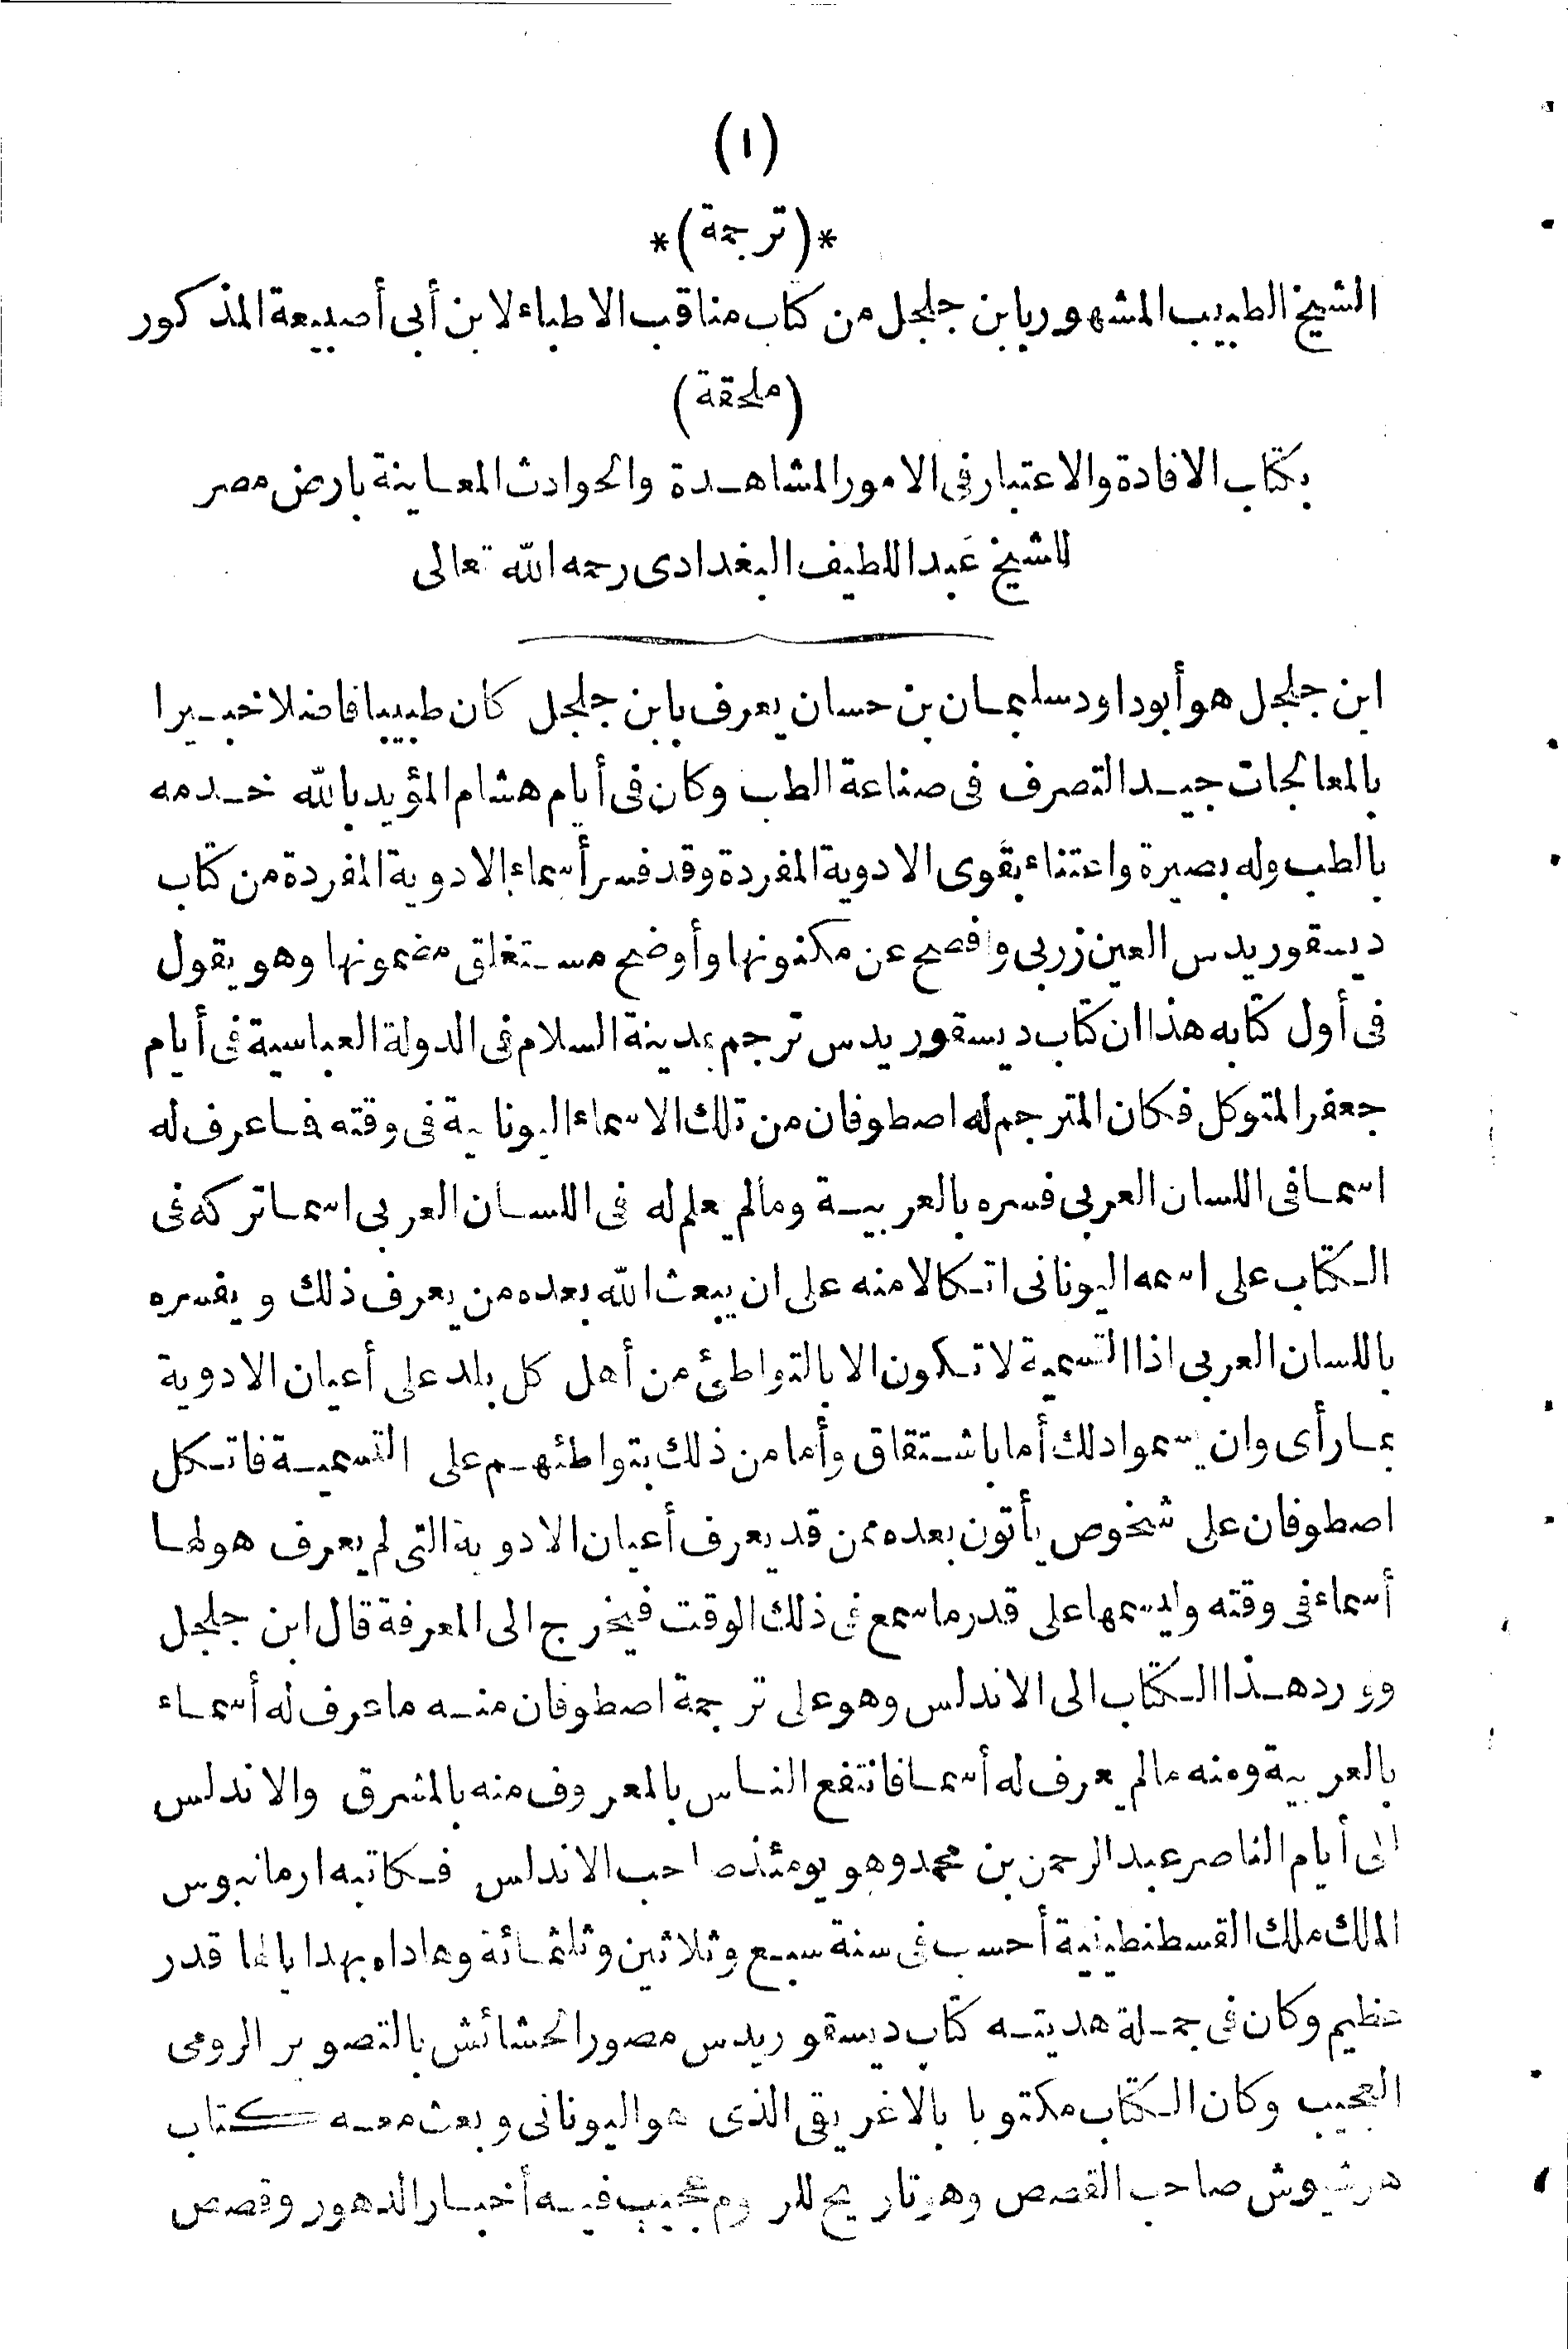 (١)
*(ترجمة)*
الشيخ الطبيب المشهور بابن جلجل من كتاب مناقب الاطباء لابن أبى أصيبعة المذكور
(ملحقة)
بكتاب الافادة والاعتبار فى الامور المشاهدة والحوادث المعاينة بارض مصر
للشيخ عبد اللطيف البغدادى رحمه الله تعالى
ابن جلجل هو أبو داود سليمان بن حسان يعرف بابن جلجل كان طبيبا فاضلا خبيرا
بالمعالجات جيد التصرف فى صناعة الطب وكان فى أيام هشام المؤيد بالله خدمه
بالطب وله بصيرة واعتناء بقوى الادوية المفردة وقد فسر أسماء الادوية المفردة من كتاب
ديسقوريدس العين زربى وافصح عن مكنونها وأوضح مستغلق مضمونها وهو يقول
فى أول كتابه هذا ان كتاب ديسقوريدس ترجم بمدينة السلام فى الدولة العباسية فى أيام
جعفر المتوكل فكان المترجم له اصطوفان من تلك الاسماء اليونانية فى وقته فاعرف له
اسما فى اللسان العربى فسره بالعربية ومالم يعلم له فى اللسان العربى اسما تركه فى
الكتاب على اسمه اليونانى اتكالا منه على ان يبعث الله بعده من يعرف ذلك ويفسره
باللسان العربى اذا التسمية لا تكون الا بالتواطئ من أهل كل بلد على أعيان الادوية
بما رأى وان يسموا ذلك أما باشتقاق وأما من ذلك بتواطئهم على التسمية فاتكل
اصطوفان على شخوص يأتون بعده ممن قد يعرف أعيان الادوية التى لم يعرف هو لها
أسماء فى وقته وليسمها على قدر ما سمع فى ذلك الوقت فيخرج الى المعرفة قال ابن جلجل
وورد هذا الكتاب الى الاندلس وهو على ترجمة اصطوفان منه ما عرف له أسماء
بالعربية ومنه مالم يعرف له أسما فانتفع الناس بالمعروف منه بالمشرق والاندلس
الى أيام الناصر عبد الرحمن بن محمد وهو يومئذ صاحب الاندلس فكاتبه ارمانيوس
الملك ملك القسطنطينية أحسب فى سنة سبع وثلاثين وثلثمائة وهاداه بهدايا لها قدر
عظيم وكان فى جملة هديته كتاب ديسقوريدس مصور الحشائش بالتصوير الرومى
العجيب وكان الكتاب مكتوبا بالاغريقى الذى هو اليونانى وبعث معه كتاب
هرشيوش صاحب القصص وهو تاريخ للروم عجيب فيه أخبار الدهور وقصص